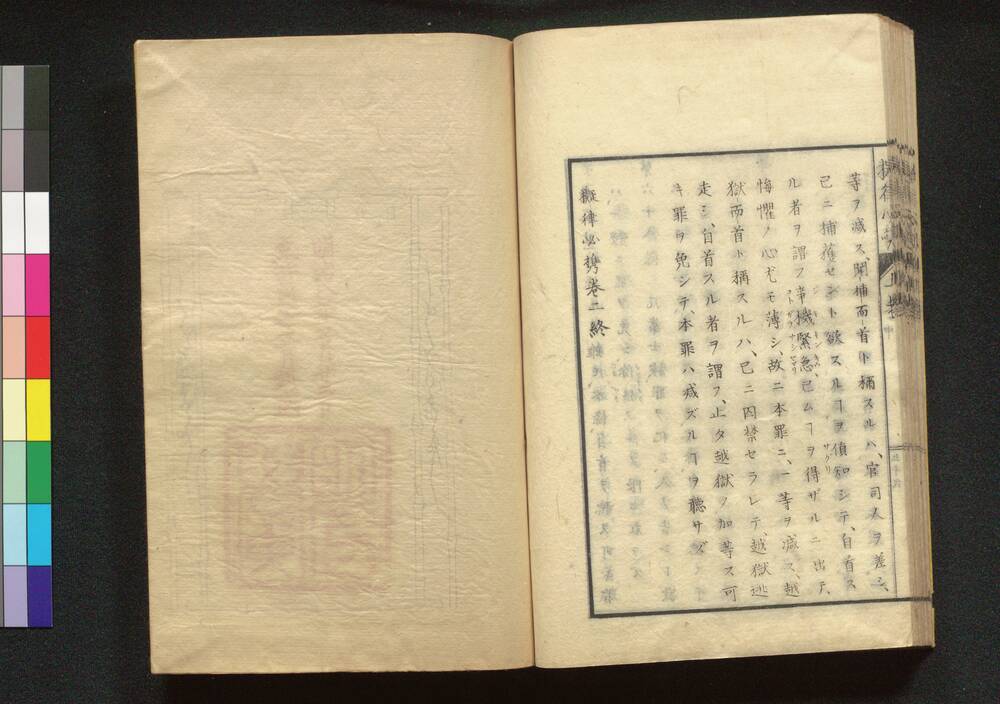 等ヲ减ス、聞捕而首ト稱スルハ、官司人ヲ差シ、
已ニ捕獲セント欲スルヿヲ偵知シテ、自首ス
ル者ヲ謂フ、事機緊急已ムヿヲ得ザルニ出テ、
悔懼ノ心尤モ薄シ、故ニ本罪ニ、一等ヲ减ス、越
獄而首ト稱スルハ、已ニ囚禁セラレテ、越獄逃
走シ、自首スル者ヲ謂フ、止タ越獄ノ加等ス可
キ罪ヲ免シテ、本罪ハ减ズルヿヲ聽サズ
擬律必携卷二終